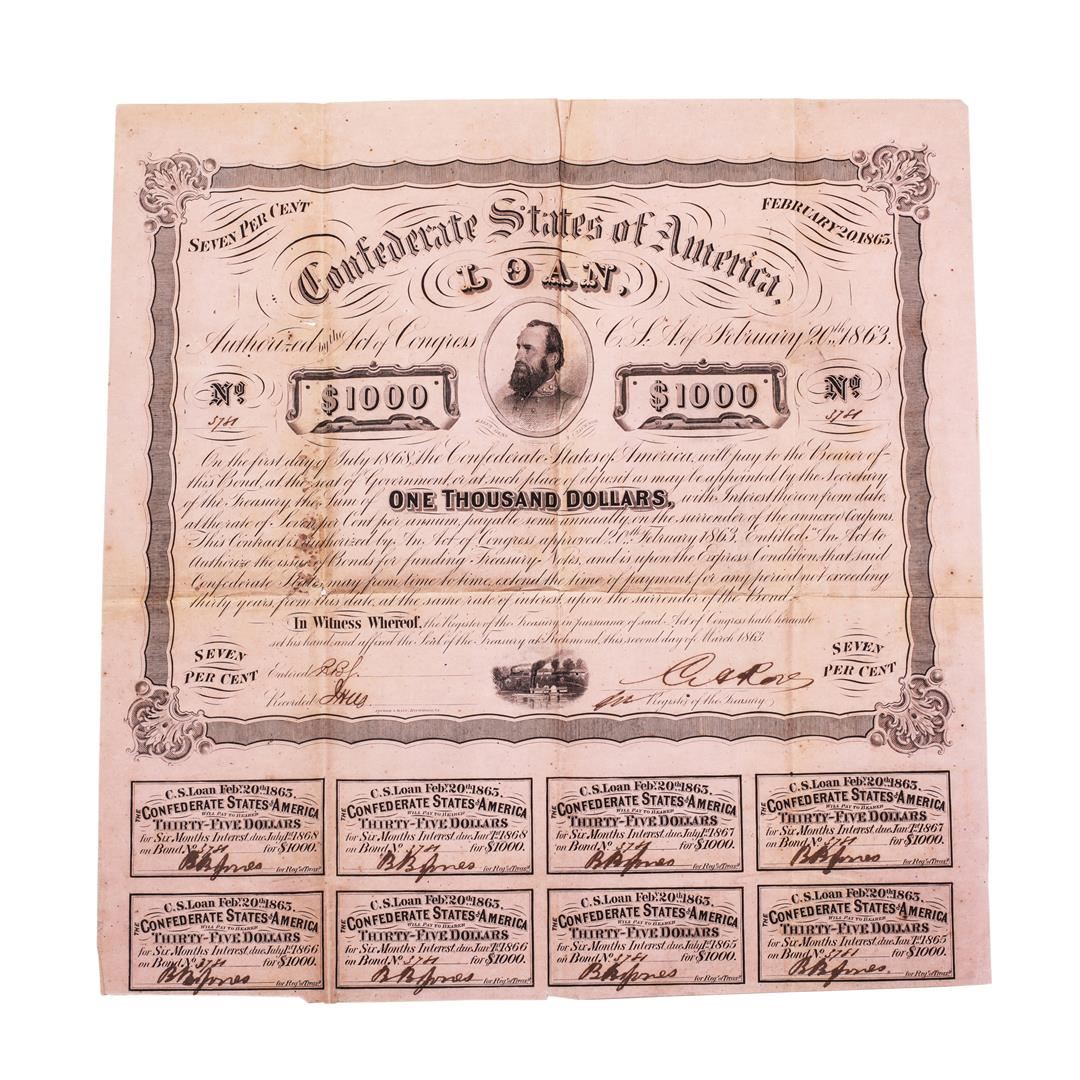 SEVEN PER CENT
FEBRUARY 20, 1863.
Confederate States of America.
LOAN,
Authorized by the Act of Congress C.S.A. of February 20th, 1863.
No $1000 $1000 No
5781 5781
On the first day of July 1868, the Confederate States of America, will pay to the Bearer of
this Bond, at the seat of Government, or at such place of deposit as may be appointed by the Secretary
of the Treasury, the Sum of ONE THOUSAND DOLLARS, with Interest thereon from date,
at the rate of Seven per Cent per annum, payable semi annually, on the surrender of the annexed Coupons.
This Contract is authorized by An Act of Congress approved 20th February 1863, Entitled "An Act to
Authorize the issue of Bonds for funding Treasury Notes, and is upon the Express Condition that said
Confederate States, may from time to time, extend the time of payment, for any period not exceeding
thirty years, from this date, at the same rate of interest, upon the surrender of the Bond.
In Witness Whereof, the Register of the Treasury, in pursuance of said Act of Congress hath hereunto
set his hand and affixed the Seal of the Treasury at Richmond, this second day of March 1863.
SEVEN PER CENT
SEVEN PER CENT
Entered
Recorded
C A Rose
Register of the Treasury
C.S. Loan Feby. 20th 1863.
THE CONFEDERATE STATES of AMERICA
WILL PAY TO BEARER
THIRTY-FIVE DOLLARS
for Six Months Interest, due July 1st 1868
on Bond No 5781 for $1000.
B R Jones for Regr. of Treasy.
C.S. Loan Feby. 20th 1863.
THE CONFEDERATE STATES of AMERICA
WILL PAY TO BEARER
THIRTY-FIVE DOLLARS
for Six Months Interest, due Jany. 1st 1868
on Bond No 5781 for $1000.
B R Jones for Regr. of Treasy.
C.S. Loan Feby. 20th 1863.
THE CONFEDERATE STATES of AMERICA
WILL PAY TO BEARER
THIRTY-FIVE DOLLARS
for Six Months Interest, due July 1st 1867
on Bond No 5781 for $1000.
B R Jones for Regr. of Treasy.
C.S. Loan Feby. 20th 1863.
THE CONFEDERATE STATES of AMERICA
WILL PAY TO BEARER
THIRTY-FIVE DOLLARS
for Six Months Interest, due Jany. 1st 1867
on Bond No 5781 for $1000.
B R Jones for Regr. of Treasy.
C.S. Loan Feby. 20th 1863.
THE CONFEDERATE STATES of AMERICA
WILL PAY TO BEARER
THIRTY-FIVE DOLLARS
for Six Months Interest, due July 1st 1866
on Bond No 5781 for $1000.
B R Jones for Regr. of Treasy.
C.S. Loan Feby. 20th 1863.
THE CONFEDERATE STATES of AMERICA
WILL PAY TO BEARER
THIRTY-FIVE DOLLARS
for Six Months Interest, due Jany. 1st 1866
on Bond No 5781 for $1000.
B R Jones for Regr. of Treasy.
C.S. Loan Feby. 20th 1863.
THE CONFEDERATE STATES of AMERICA
WILL PAY TO BEARER
THIRTY-FIVE DOLLARS
for Six Months Interest, due July 1st 1865
on Bond No 5781 for $1000.
B R Jones for Regr. of Treasy.
C.S. Loan Feby. 20th 1863.
THE CONFEDERATE STATES of AMERICA
WILL PAY TO BEARER
THIRTY-FIVE DOLLARS
for Six Months Interest, due Jany. 1st 1865
on Bond No 5781 for $1000.
B R Jones for Regr. of Treasy.